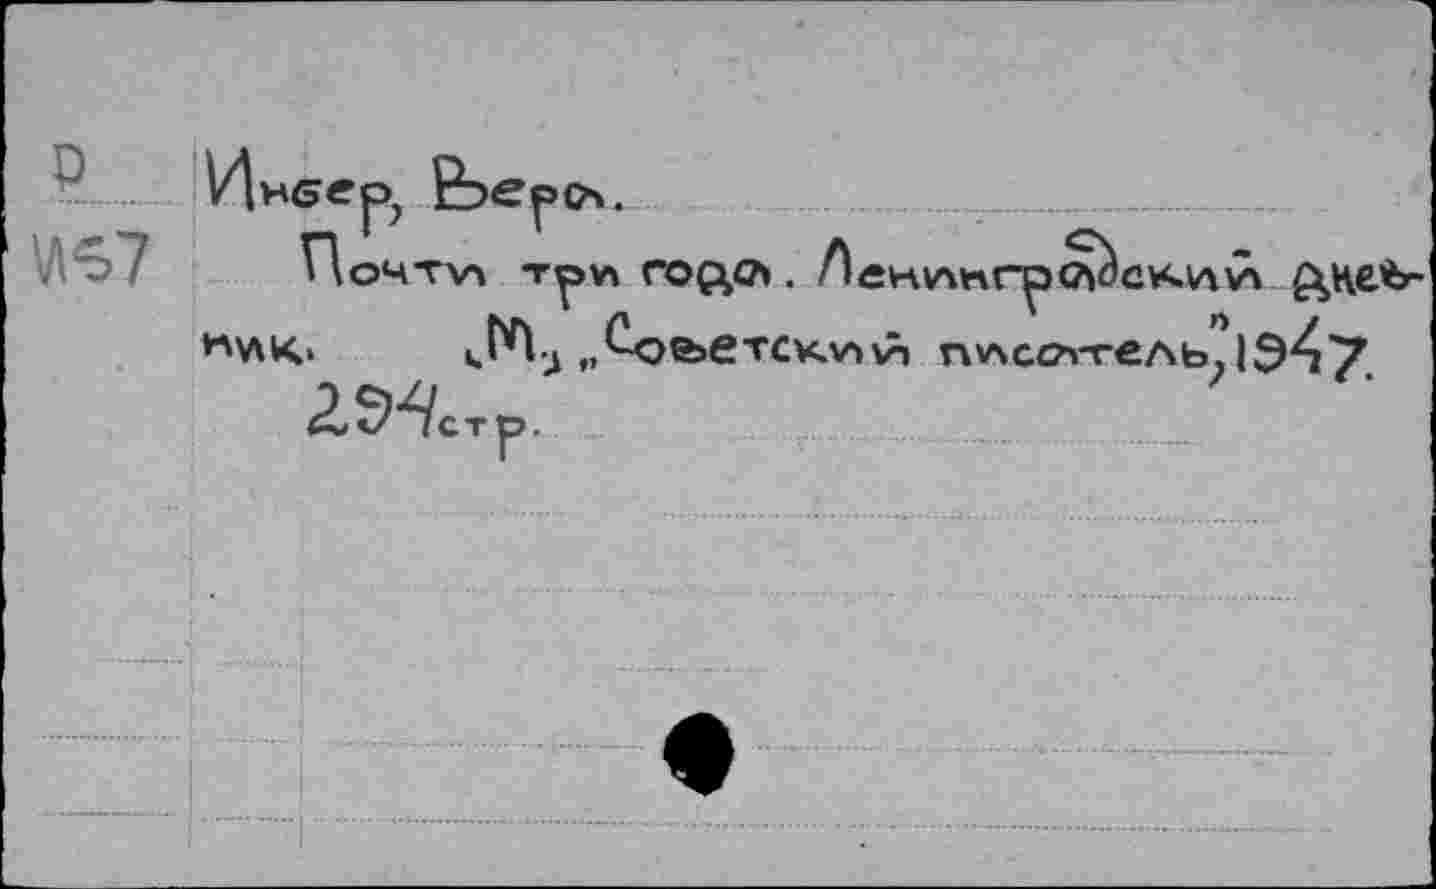 Р Инбер, Вера.
И57 Почти три года. Ленинградский днев-
ник. М., „Советский писатель", 1947.
294 стр.